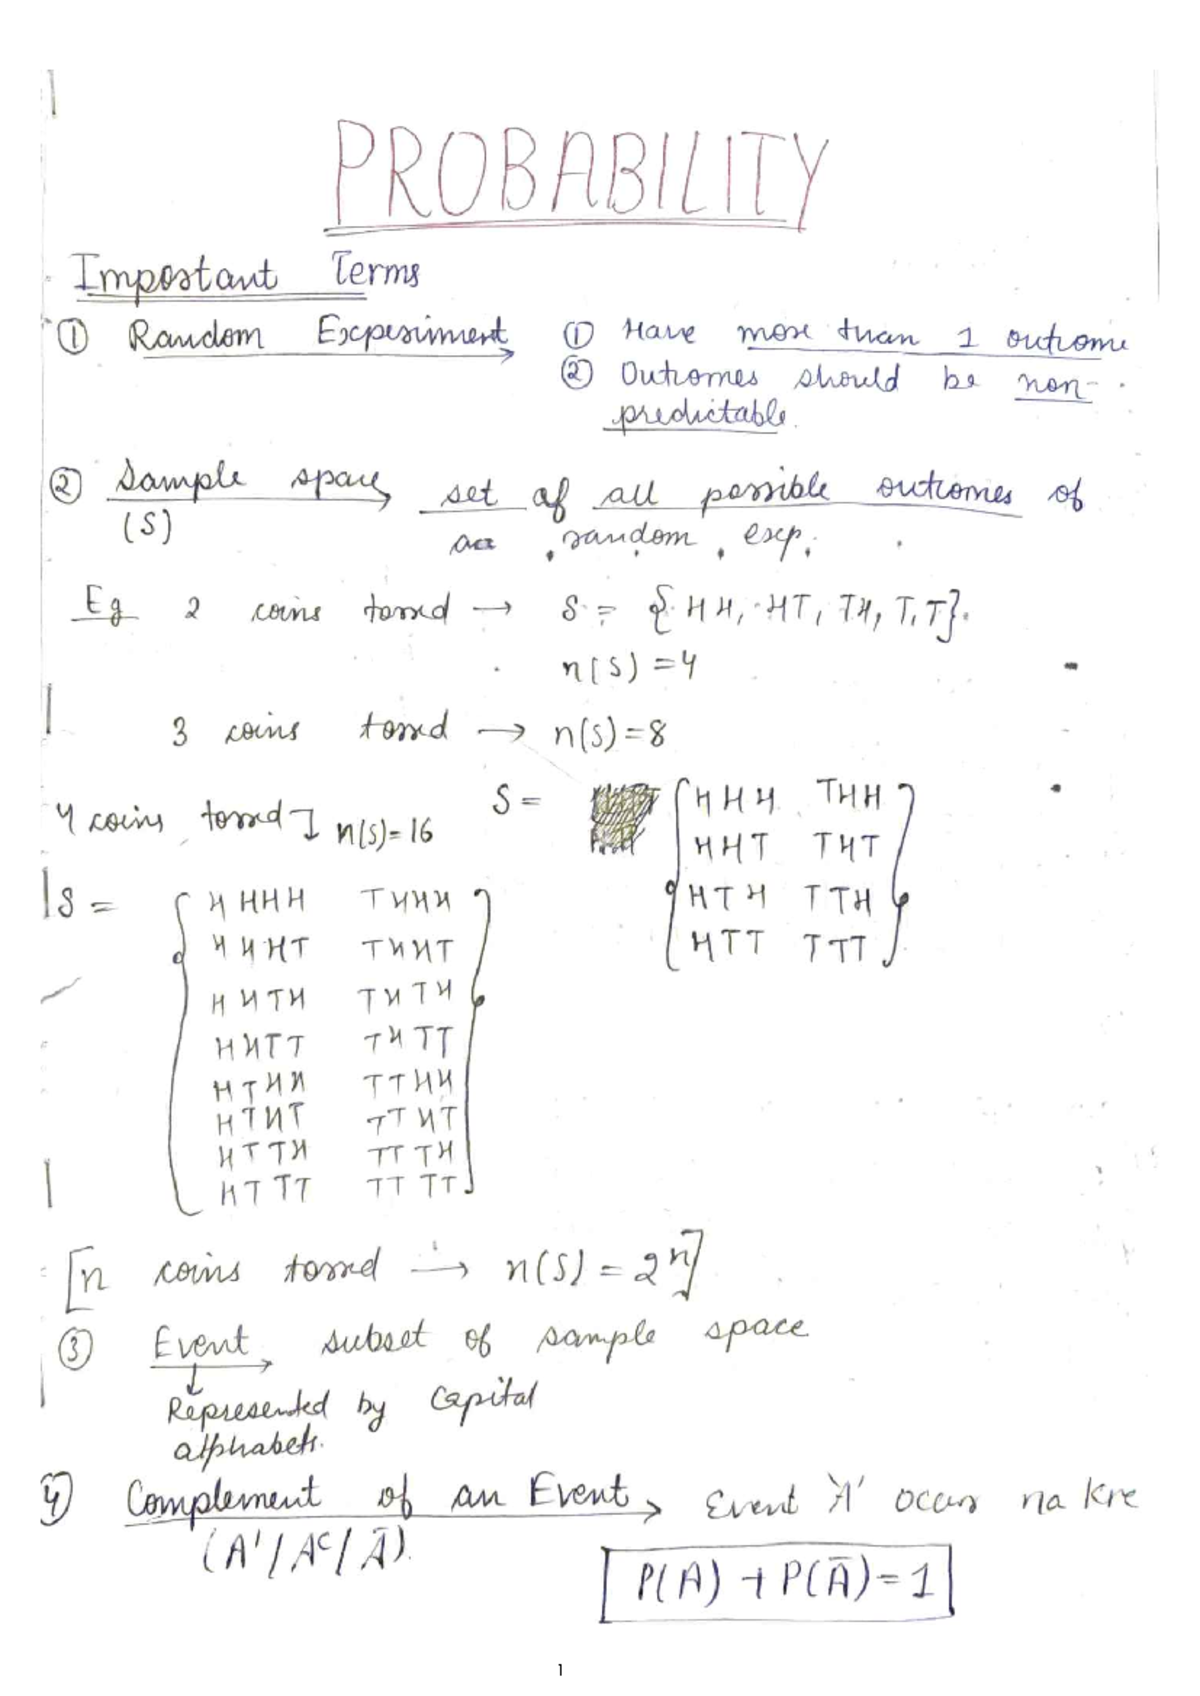 PROBABILITY
Important Terms
① Random Experiment → ① Have more than 1 outcome
② Outcomes should be non-
predictable.
② Sample space → set of all possible outcomes of
(S) random exp.
Eg 2 coins tossed → S = {HH, HT, TH, T,T}.
n(S) = 4
3 coins tossed → n(S) = 8
S = {HHH THH
HHT THT
HTH TTH
HTT TTT}
4 coins tossed] n(S) = 16
S = {HHHH THHH
HHHT THHT
HHTH THTH
HHTT THTT
HTHH TTHH
HTHT TTHT
HTTH TTTH
HTTT TTTT}
[n coins tossed → n(S) = 2ⁿ]
③ Event → subset of sample space
↓
Represented by Capital
alphabets.
④ Complement of an Event → Event 'A' occur na kre
(A'/Aᶜ/Ā).
P(A) + P(Ā) = 1
1